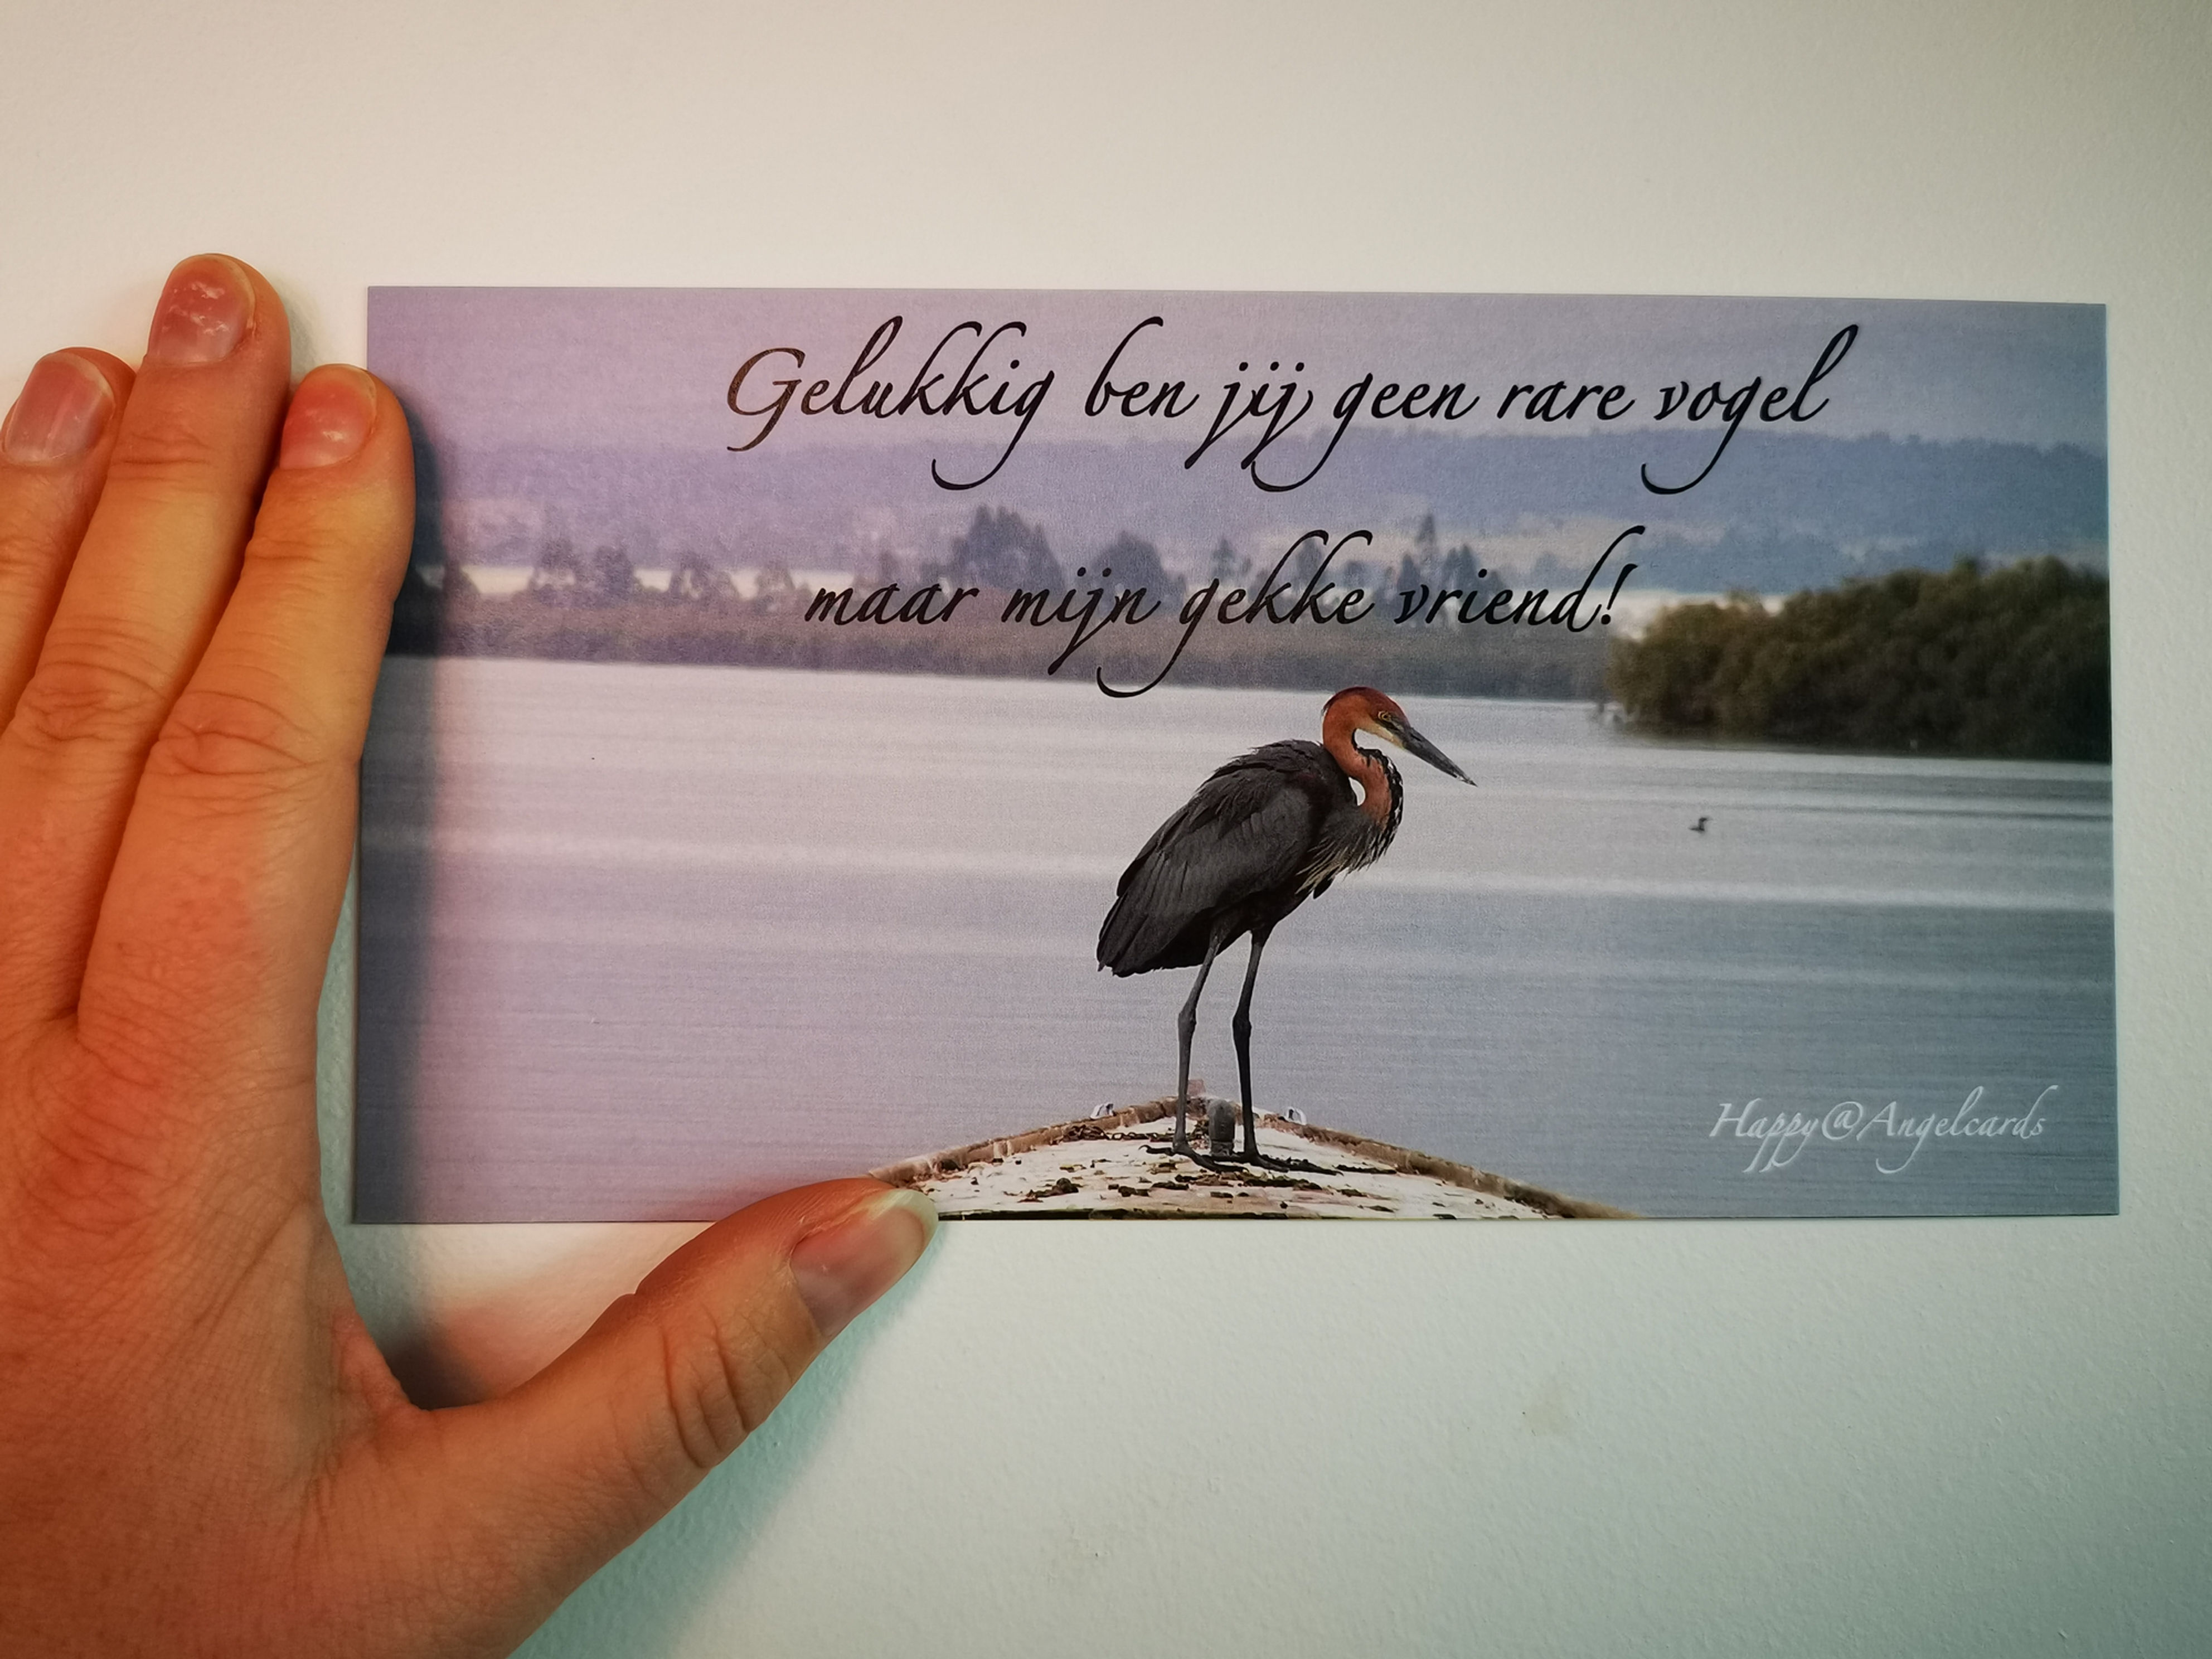 Gelukkig ben jij geen rare vogel
maar mijn gekke vriend!
Happy@Angelcards